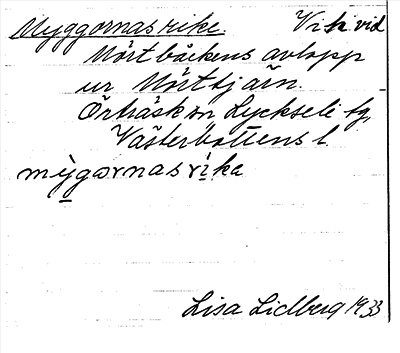 Myggornas rike. Vik vid
Mörtbäckens avlopp
ur Mörttjärn.
Örträsk sn, Lycksele tg,
Västerbottens l.
mỳgornas rika
Lisa Lidberg 1933